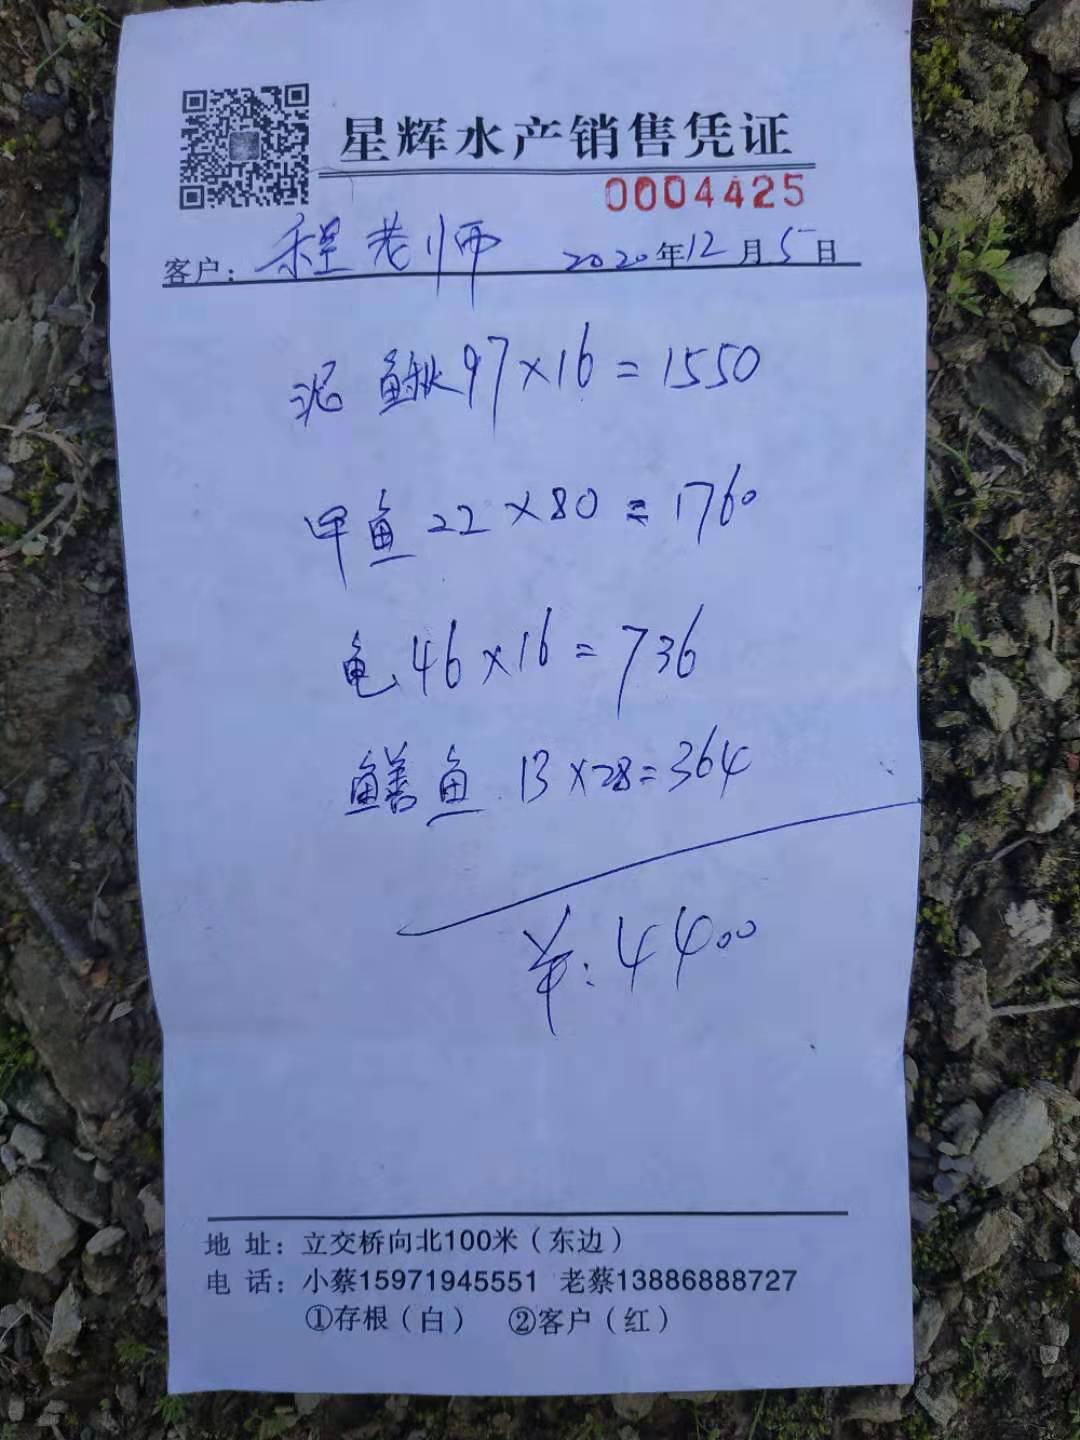 星辉水产销售凭证
0004425
客户：程老师 2020年12月5日
泥鳅97×16=1550
甲鱼 22×80=1760
龟46×16=736
鳝鱼 13×28=364
¥:4400
地 址：立交桥向北100米（东边）
电 话：小蔡15971945551 老蔡13886888727
①存根（白） ②客户（红）